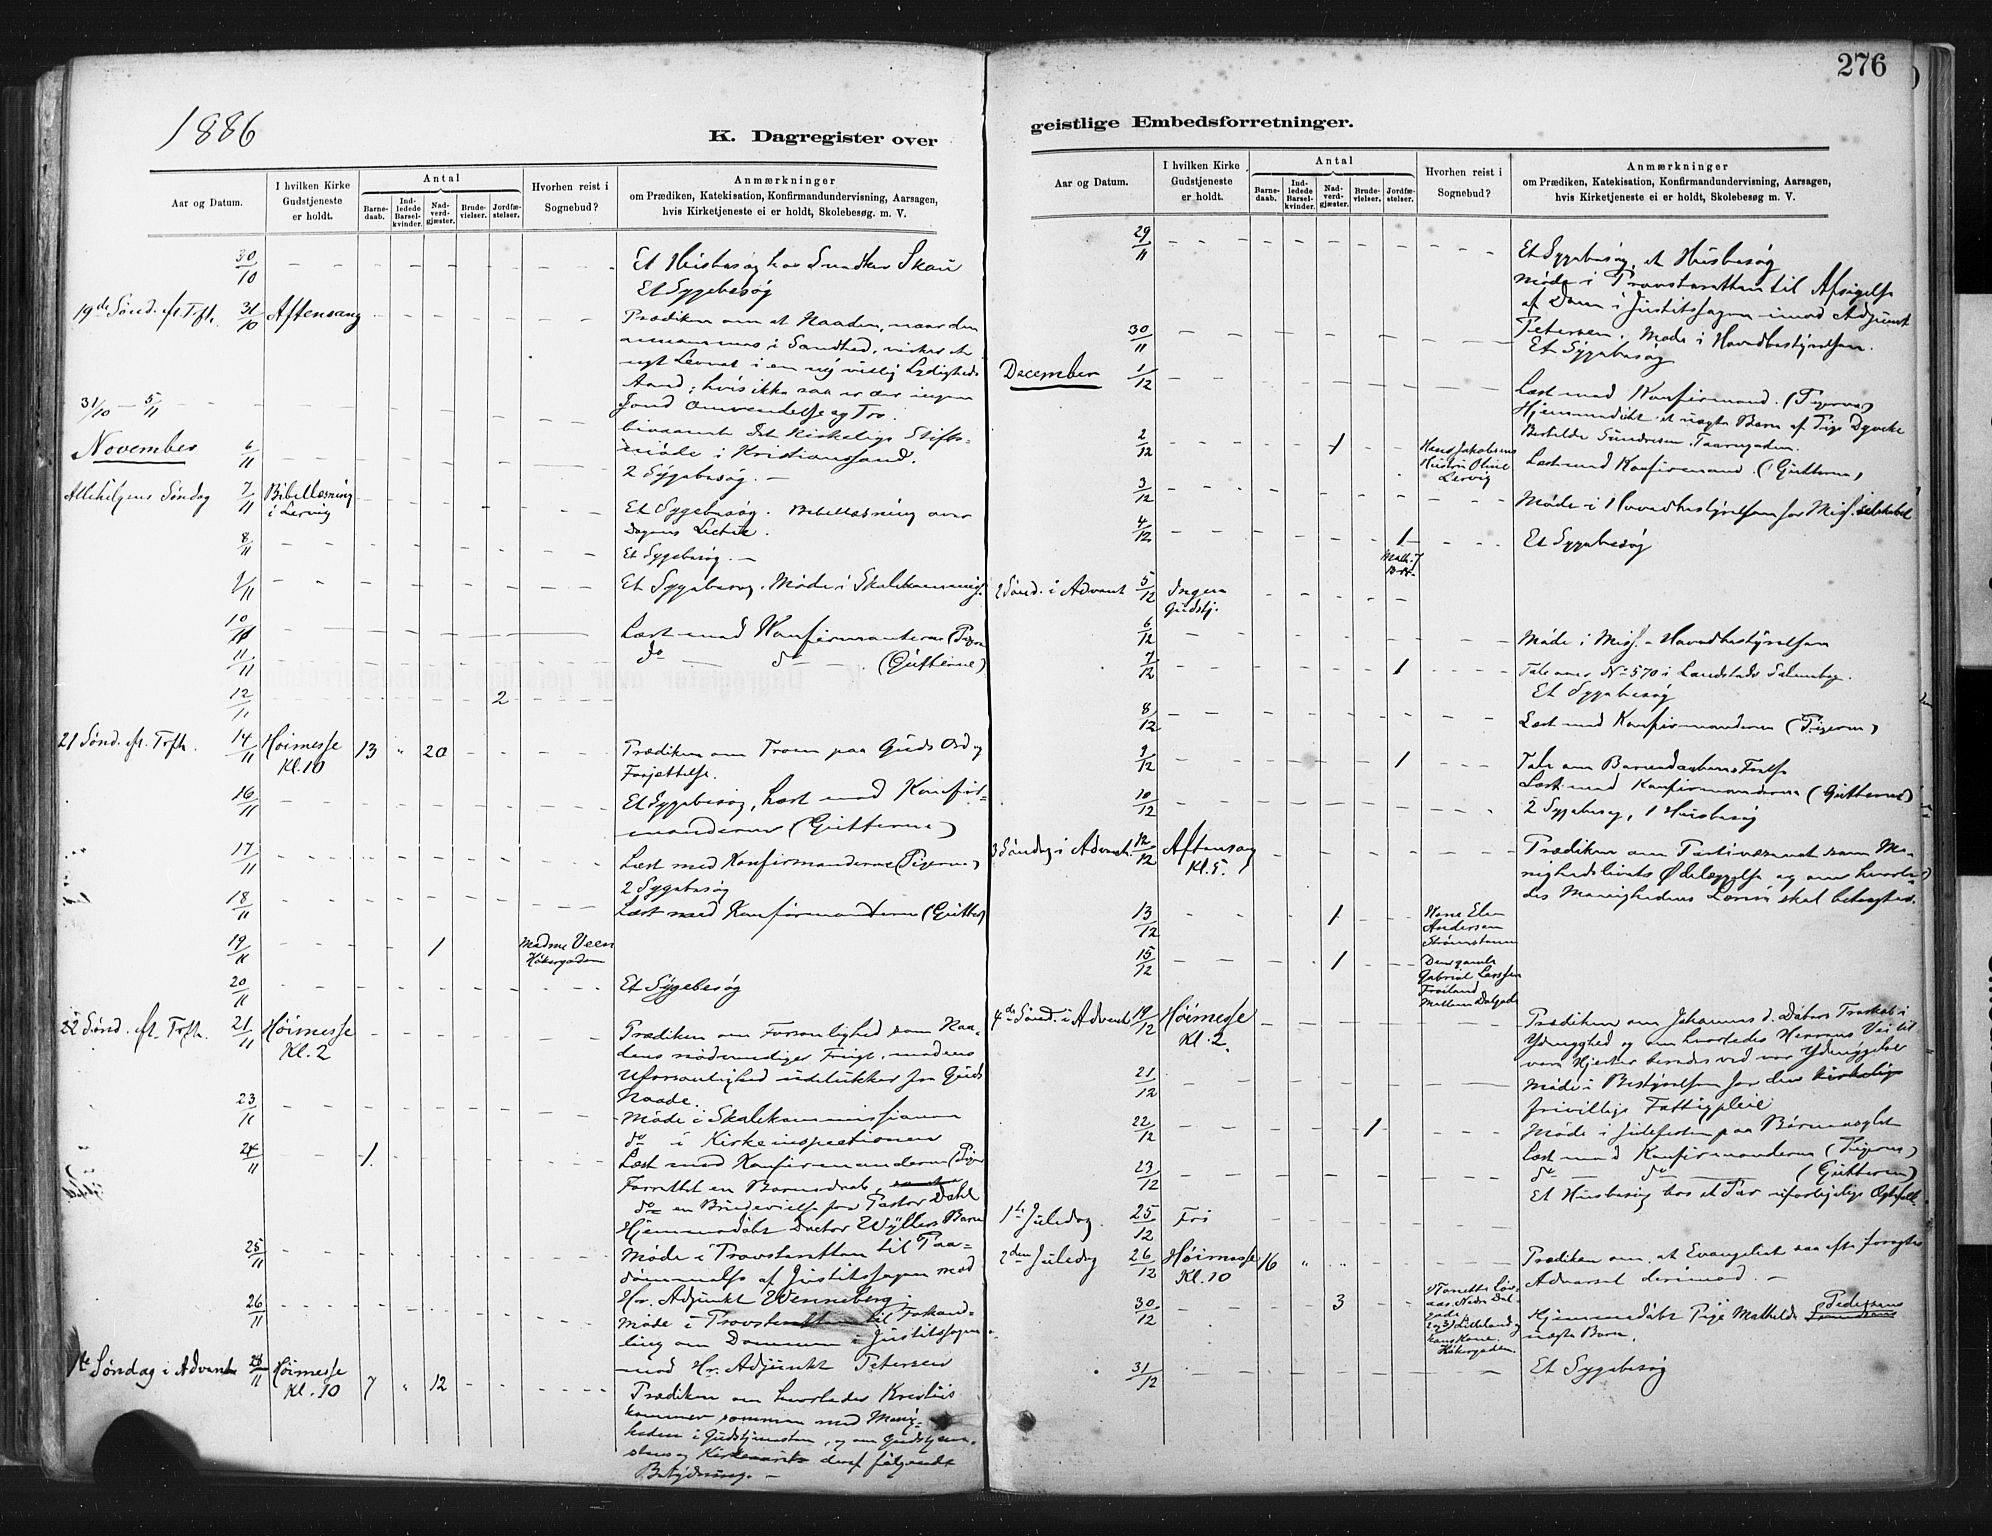 276
1886
K. Dagregister over
geistlige Embedsforretninger.
Aar og Datum.
I hvilken Kirke Gudstjeneste er holdt.
Antal
Barnedaab.
Indledede Barselkvinder.
Nadverdgjæster.
Brudevielser.
Jordfæstelser.
Hvorhen reist i Sognebud?
Anmærkninger
om Prædiken, Katekisation, Konfirmandundervisning, Aarsagen,
hvis Kirketjeneste ei er holdt, Skolebesøg m. V.
30/10 Et Husbesøg hos Snedker Skau
Et Sygebesøg
19de Sønd. eft. Trfh. 31/10 Aftensang Prædiken om at Naaden, naar den
annammes i Sandhed, virker et
nyt Levnet i en ny villig
Aand; hvis ikke saa er der ingen
Omvendelse og Tro.
31/10 — 5/11 bivaanede det kirkelige Stifts-
møde i Kristianssand.
November 6/11 2 Sygebesøg. —
Allehelgens Søndag 7/11 Bibellæsning i Lervig Et Sygebesøg. Bibellæsning over
Dagens
8/11 Et Sygebesøg. —
9/11 Et Sygebesøg. Møde i Skolekommiss.
10/11 Læst med Konfirmanterne (Piger
11/11 do — do — (Gutterne)
12/11 2
21 Sønd. eft. Trfh. 14/11 Høimesse Kl. 10 13 " 20 Prædiken om Troen paa Guds Ord og
Forjættelse.
16/11 Et Sygebesøg, Læst med Konfir-
manderne (Gutterne)
17/11 Læst med Konfirmanderne (Pigerne)
2 Sygebesøg
18/11 Læst med Konfirmanderne (Gutter)
19/11 1 Madme Veen Høkergaden
20/11 Et Sygebesøg
22 Sønd. eft. Trfh. 21/11 Høimesse Kl. 2 Prædiken om Forsonlighed som Naa-
dens nødvendige Frugt, medens
Uforsonlighed udelukker fra Guds
Naade.
23/11 Møde i Skolekommissionen
do i Kirkeinspectionen
24/11 1 Læst med Konfirmanderne (Piger
Forrettet en Barnedaab
do en Brudevielse for Pastor Dahl
Hjemmedøbt Doctor Wyllers Barn
25/11 Møde i Provsteretten til Paa-
dømmelse af Justitssagen mod
Hr. Adjunkt Wenneberg.
26/11 Møde i Provsteretten til Forhand-
ling om Dommen i Justitssagen
mod Hr. Adjunkt Petersen
1te Søndag i Advent 28/11 Høimesse Kl. 10 7 " 12 Prædiken om hvorledes Kristus
kommer sammen med Menig-
heden i Gudstjenesten, og om Gudstjene-
stens og Kirkeaarets deraf følgende
Betydning. —
Aar og Datum.
I hvilken Kirke Gudstjeneste er holdt.
Antal
Barnedaab.
Indledede Barselkvinder.
Nadverdgjæster.
Brudevielser.
Jordfæstelser.
Hvorhen reist i Sognebud?
Anmærkninger
om Prædiken, Katekisation, Konfirmandundervisning, Aarsagen,
hvis Kirketjeneste ei er holdt, Skolebesøg m. V.
29/11 Et Sygebesøg, et Husbesøg
Møde i Provsteretten til Afsigelse
af Dom i Justitssagen imod Adjunkt
Petersen. Møde i Hovedbestyrelsen.
30/11 Et Sygebesøg
December 1/12 Læst med Konfirmand. (Pigerne)
Hjemmedøbt et uægte Barn af Pige Dyveke
Berthilde Gundersen. Taarngaden.
2/12 1 Hans Jakobsens Hustru Oline Lervig Læst med Konfirmand. (Gutterne)
3/12 Møde i Hovedbestyrelsen for Miss. selskabet
4/12 1 Et Sygebesøg
2 Sønd. i Advent 5/12 Ingen Gudstj.
6/12 Møde i Miss. Hovedbestyrelsen
7/12 1 Tale over No 570 i Landstads Salmebog.
Et Sygebesøg
8/12 Læst med Konfirmanderne (Pigerne)
9/12 1 Tale om Barnedaabens Frelse
Læst med Konfirmanderne (Gutterne)
10/12 2 Sygebesøg, 1 Husbesøg
3 Søndag i Advent. 12/12 Aftensang Kl. 5. Prædiken om Partivæsenet som Me-
nighedslivets Ødelæggelse og om hvorle-
des Menighedens Lærere skal betragtes.
13/12 1 Andersen
15/12 1 Den gamle Gabriel Larssen
4de Sønd. i Advent 19/12 Høimesse Kl. 2. Prædiken om Johannes d. Døbers Troskab i
Ydmyghed og om hvorledes Herrens Vei til
vore Hjerter beredes ved vor Ydmygelse
21/12 Møde i Bestyrelsen for den kirkelige
frivillige Fattigpleie
22/12 1 Møde i Julefesten paa Børneasylet
Læst med Konfirmanderne (Pigerne)
23/12 do — do — (Gutterne)
Et Husbesøg hos et Par uforligelige Ægtefolk
1te Juledag. 25/12 Fri
2den Juledag 26/12 Høimesse Kl. 10 16 " " Prædiken om, at Evangeliet saa ofte foragtes
Advarsel derimod. —
30/12 3 Høkergaden. Hjemmedøbt Pige Mathilde Pedersens
uægte Barn.
31/12 Et Sygebesøg